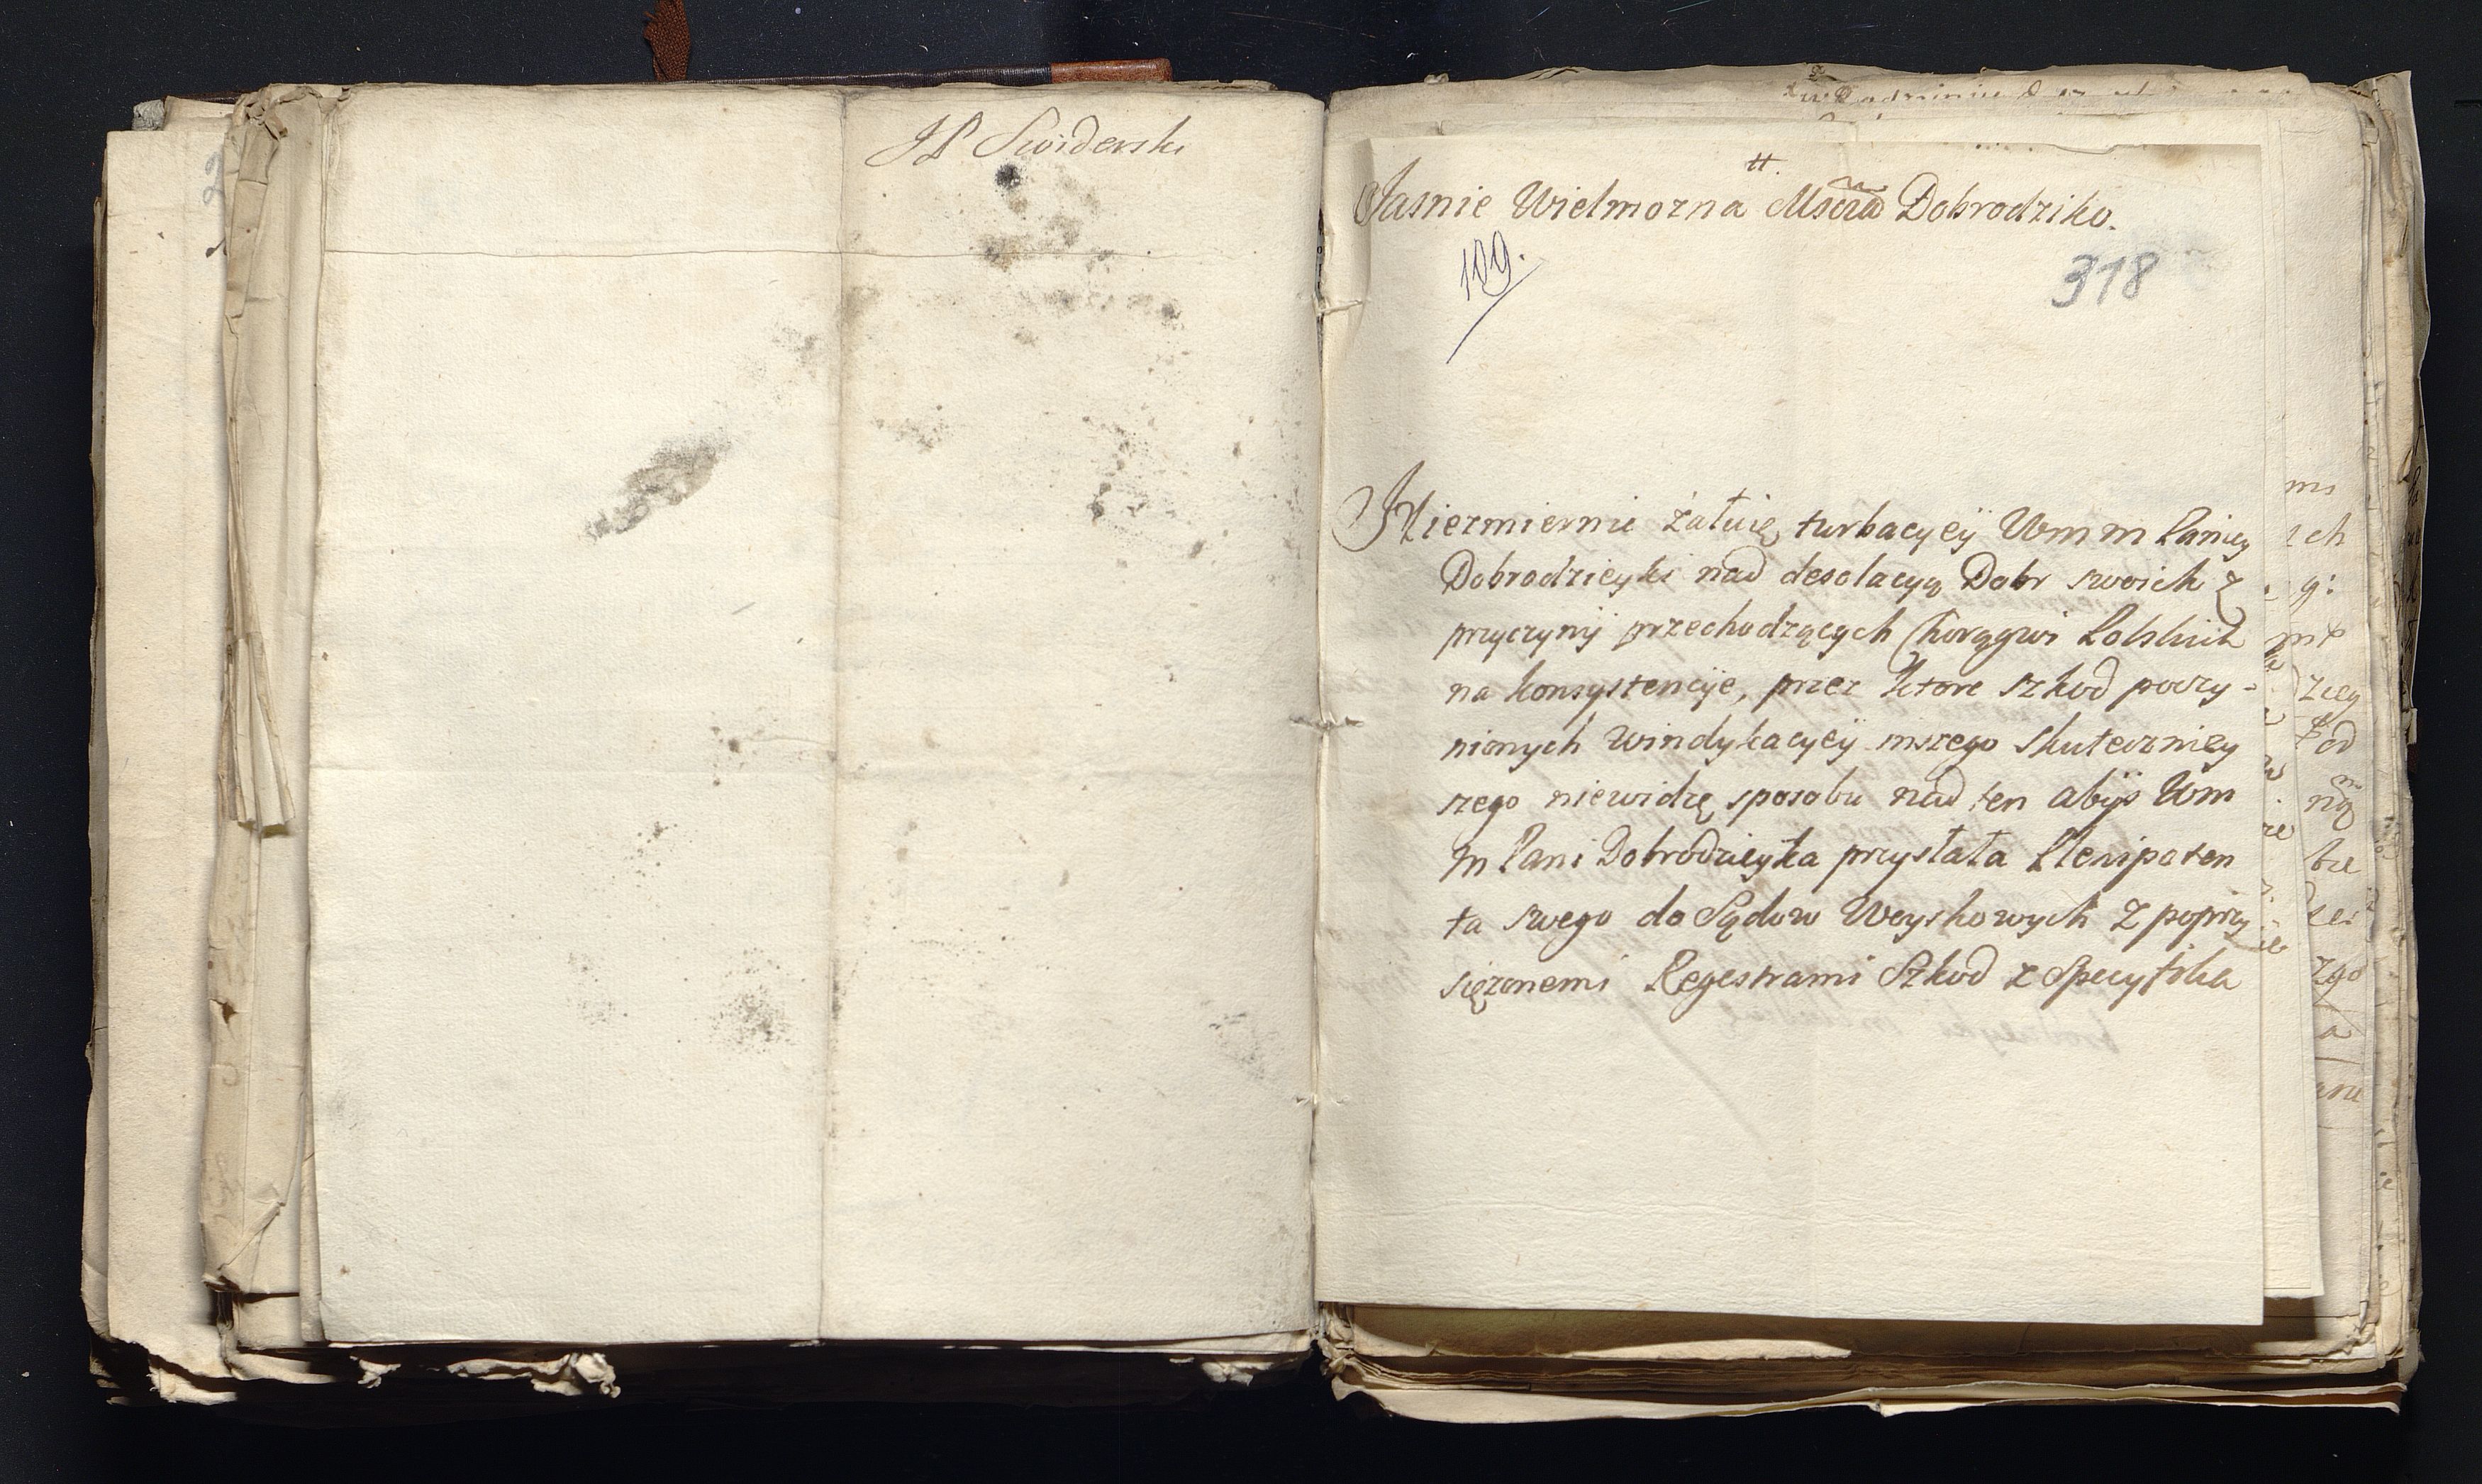 JP Swiderski
tt.
Jasnie Wielmozna Mscia Dobrodziko.
109.
318
Niezmiernie żałuię turbacyeÿ Wm m Paniey
Dobrodzieyki nad desolacyą Dobr swoich z
przyczynÿ przechodzących Chorągwi Polskich
na konsystencÿe, przez ktore szkod poczy-
nionych windykacyeÿ inszego skuteczniey
szego niewidzę sposobu nad ten abÿs Wm
m Pani Dobrodzieyka przysłała Plenipoten
ta swego do Sądow Woyskowych z poprzy
siężonemi Regestrami Szkod z Specyfika